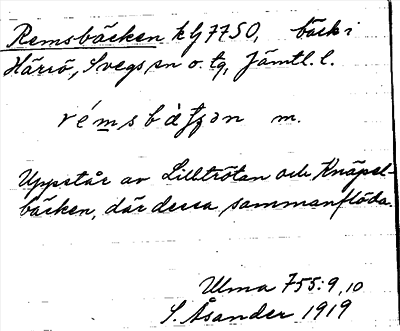 Remsbäcken kG7750, bäck i
Härrö, Svegs sn o. tg, Jämtl. l.
rémsbàtȥən m.
Uppstår av Lilltrötan och Knäpel-
bäcken, där dessa sammanflöda.
Ulma 755:9,10
S. Åsander 1919